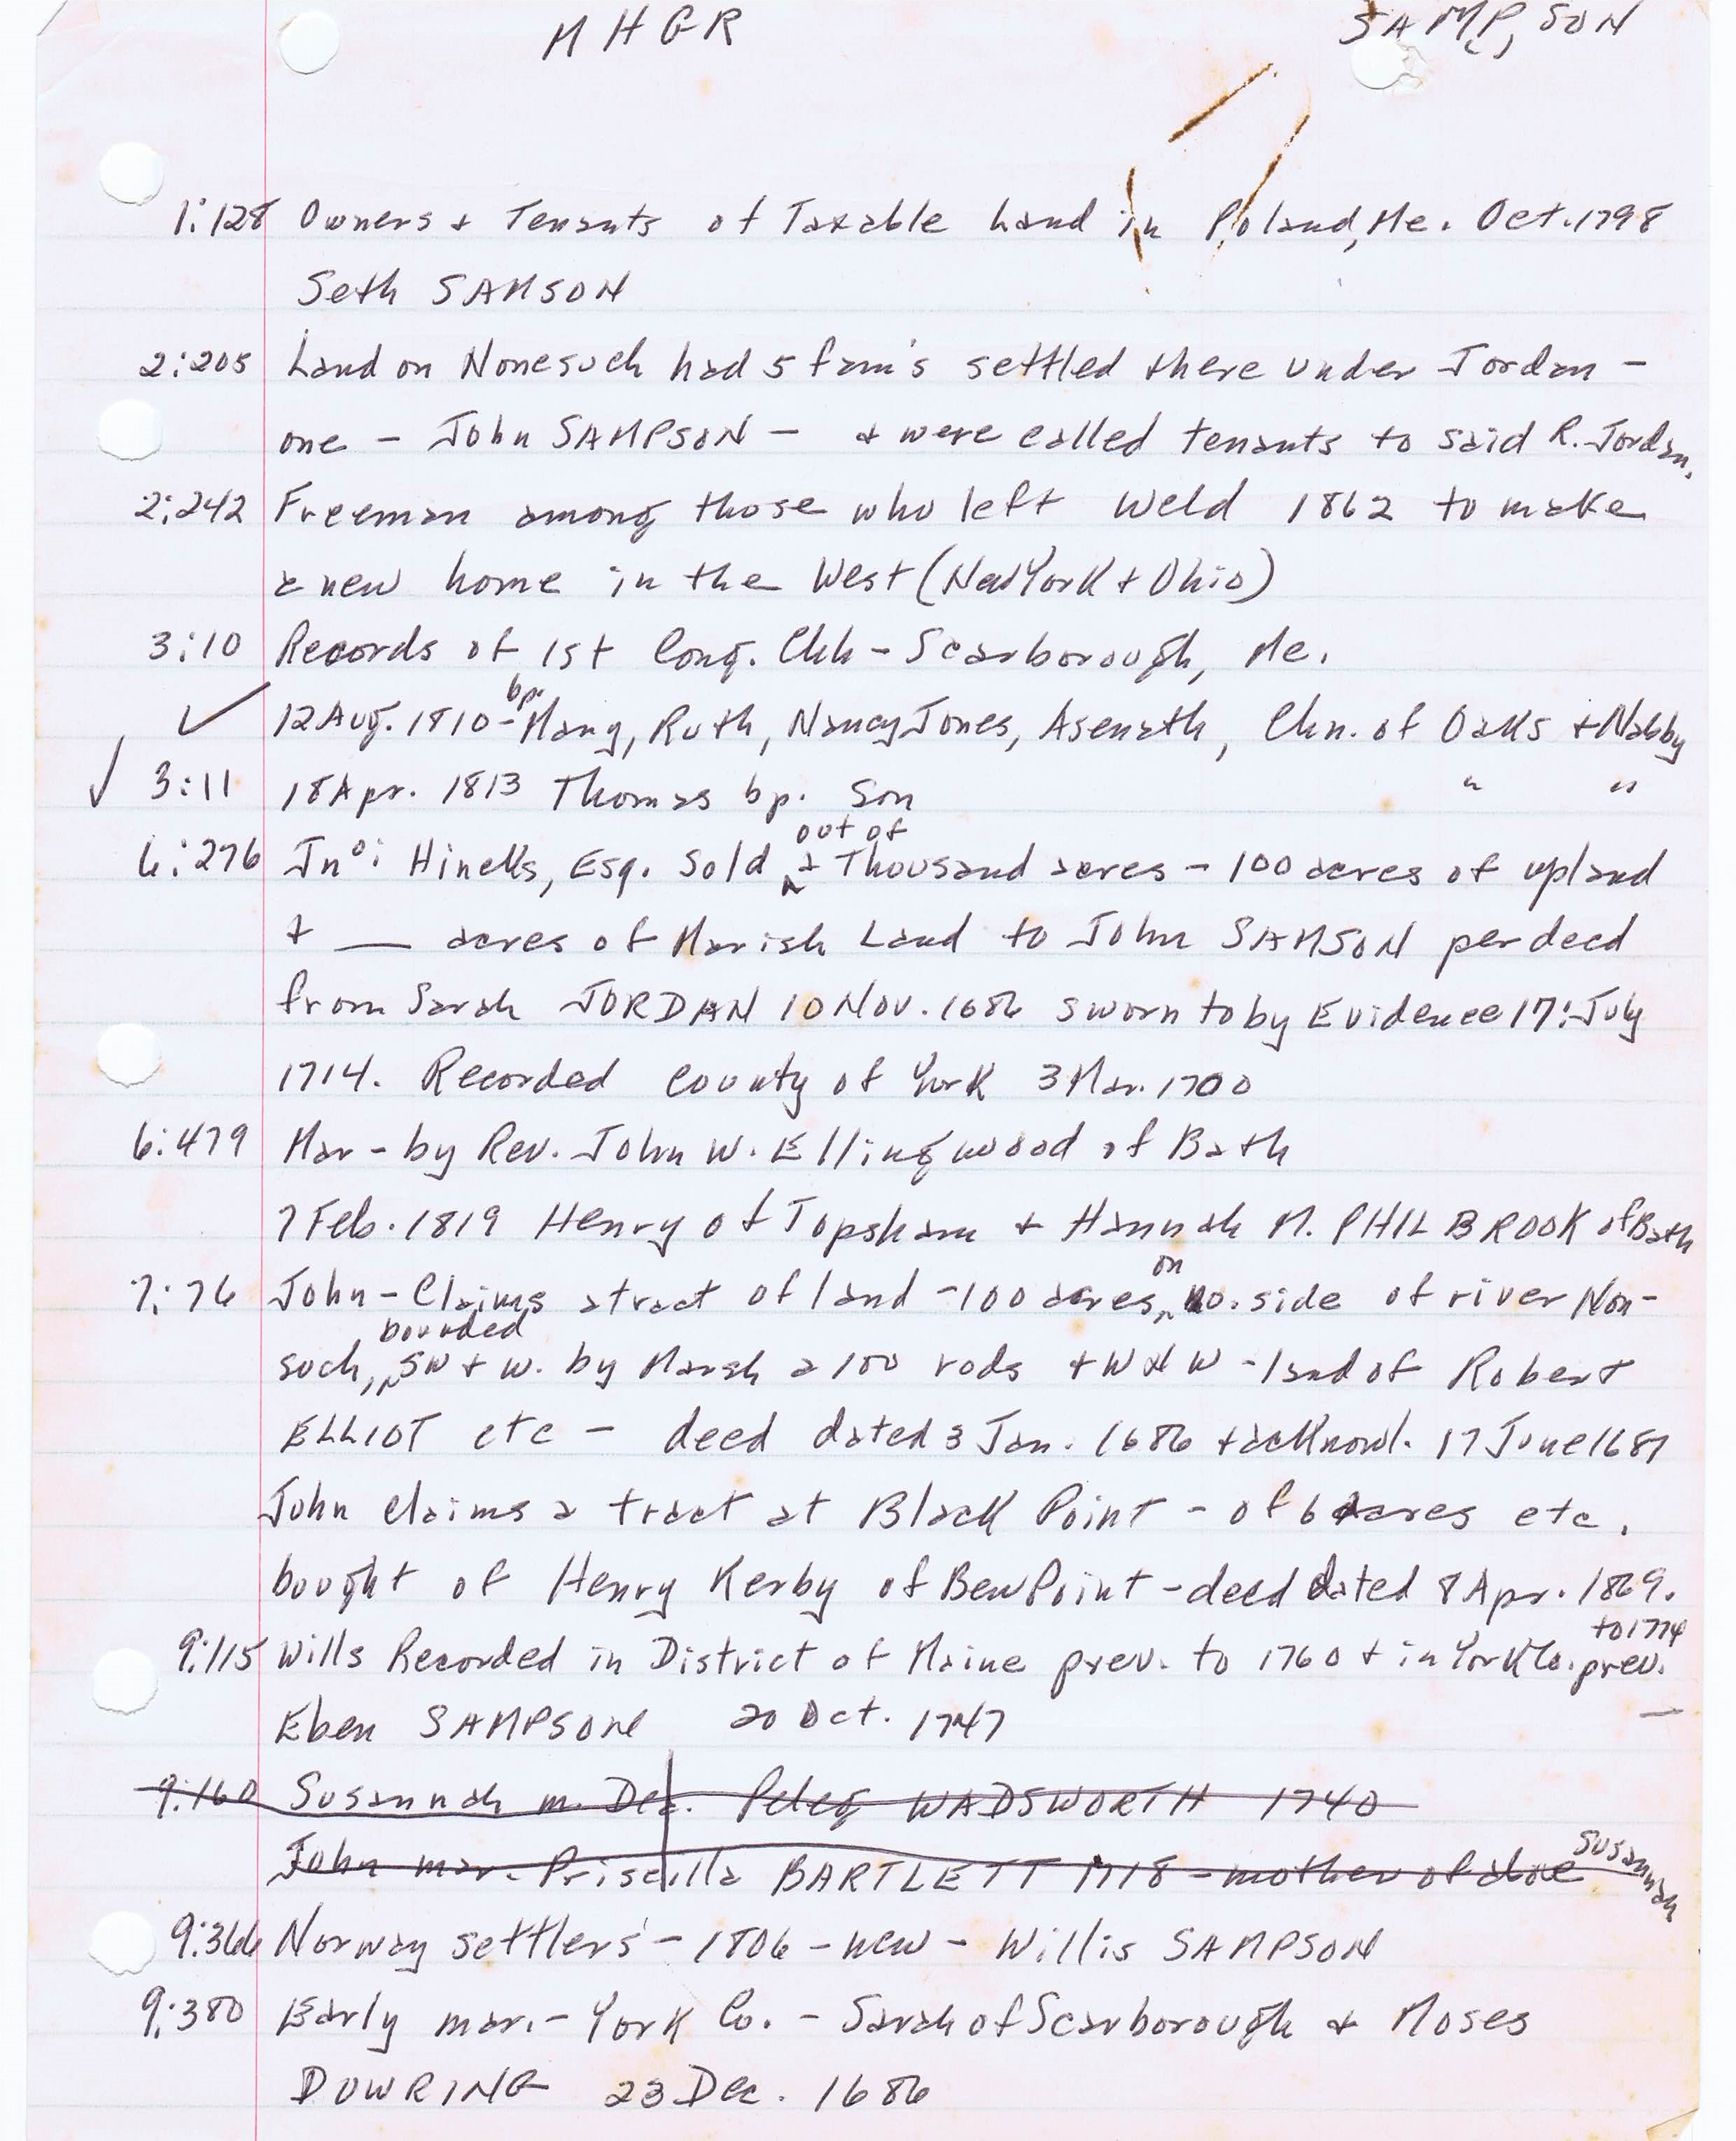 MHGR SAMP,SON
1:128 Owners + Tenants of Taxable Land in Poland, Me. Oct. 1798
Seth SAMSON
2:205 Land on Nonesuch had 5 fam's settled there under Jordan -
one - John SAMPSON - + were called tenants to said R. Jordan.
2:242 Freeman among those who left Weld 1862 to make
a new home in the West (New York + Ohio)
3:10 Records of 1st Cong. Chh - Scarborough, Me.
✓ 12 Aug. 1810 - bp. Mary, Ruth, Nancy Jones, Asenath, Chn. of Oaks + Nabby
✓ 3:11 18 Apr. 1813 Thomas bp. Son " "
6:276 Jno: Hincks, Esq. Sold out of a Thousand acres - 100 acres of upland
+ __ acres of Marish Land to John SAMSON per deed
from Sarah JORDAN 10 Nov. 1686 sworn to by Evidence 17: July
1714. Recorded County of York 3 Mar. 1700
6:479 Mar - by Rev. John W. Ellingwood of Bath
7 Feb. 1819 Henry of Topsham + Hannah M. PHILBROOK of Bath
7:76 John - Claims a tract of land - 100 acres, on no. side of river Non-
such, bounded SW + W. by Marsh a 100 rods + WNW - land of Robert
ELLIOT etc - deed dated 3 Jan. 1686 + acknowl. 17 June 1687
John claims a tract at Black Point - of 6 acres etc.
bought of Henry Kerby of Bew Point - deed dated 8 Apr. 1869.
9:115 Wills Recorded in District of Maine prev. to 1760 + in York Co. prev. to 1774
Eben SAMPSON 20 Oct. 1747
9:160 Susannah m. Dea. Peleg WADSWORTH 1740
John mar. Priscilla BARTLETT 1718 - mother of above Susannah
9:366 Norway settlers - 1806 - new - Willis SAMPSON
9:380 Early mar. - York Co. - Sarah of Scarborough + Moses
DOWRING 23 Dec. 1686